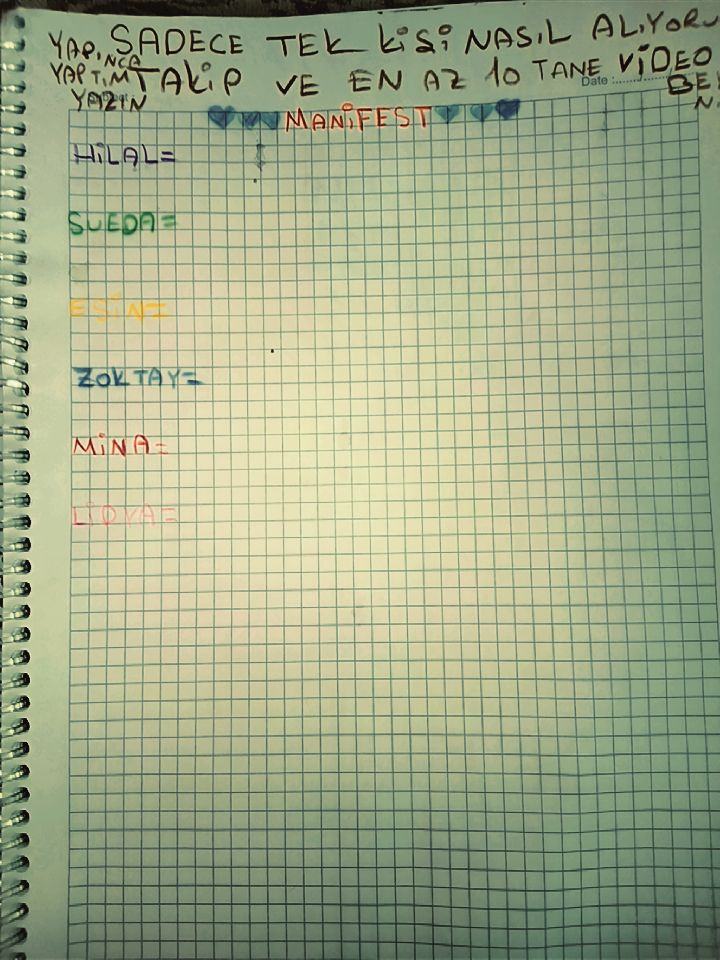 SADECE TEK KiSi NASIL ALIYORU
YAPINCA
YAPTIM TAKiP VE EN AZ 10 TANE ViDEO
YAZIN
Date :
BE
N
MANiFEST
HiLAL=
SUEDA=
ESiN=
ZOKTAY=
MiNA=
LiDYA=